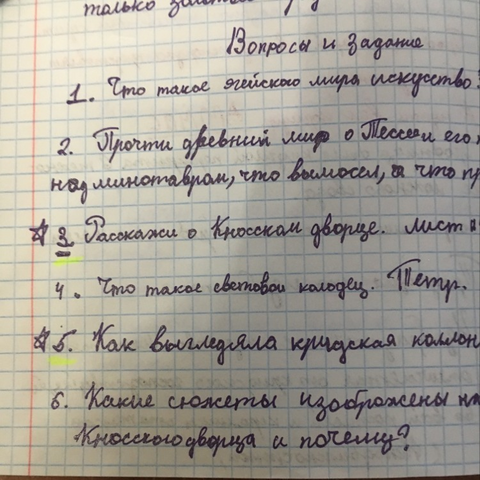 только
Вопросы и задание
1. Что такое эгейского мира искусство?
2. Прочти древний миф о Тессе и его
над минотавром, что вымосел, а что пр
3 Расскажи о Кносском дворце. лист
4. Что такое световой колодец. Петр.
5. Как выгледяла кридская коллон
6. Какие сюжеты изображены на
Кносского дворца и почему?